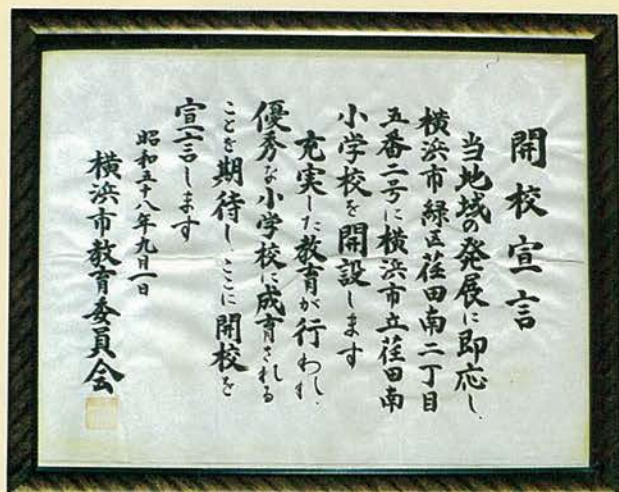 開校宣言
当地域の発展に即応し、
横浜市緑区荏田南二丁目
五番二号に横浜市立荏田南
小学校を開設します
充実した教育が行われ、
優秀な小学校に成育される
ことを期待し、ここに開校を
宣言します
昭和五十八年九月一日
横浜市教育委員会